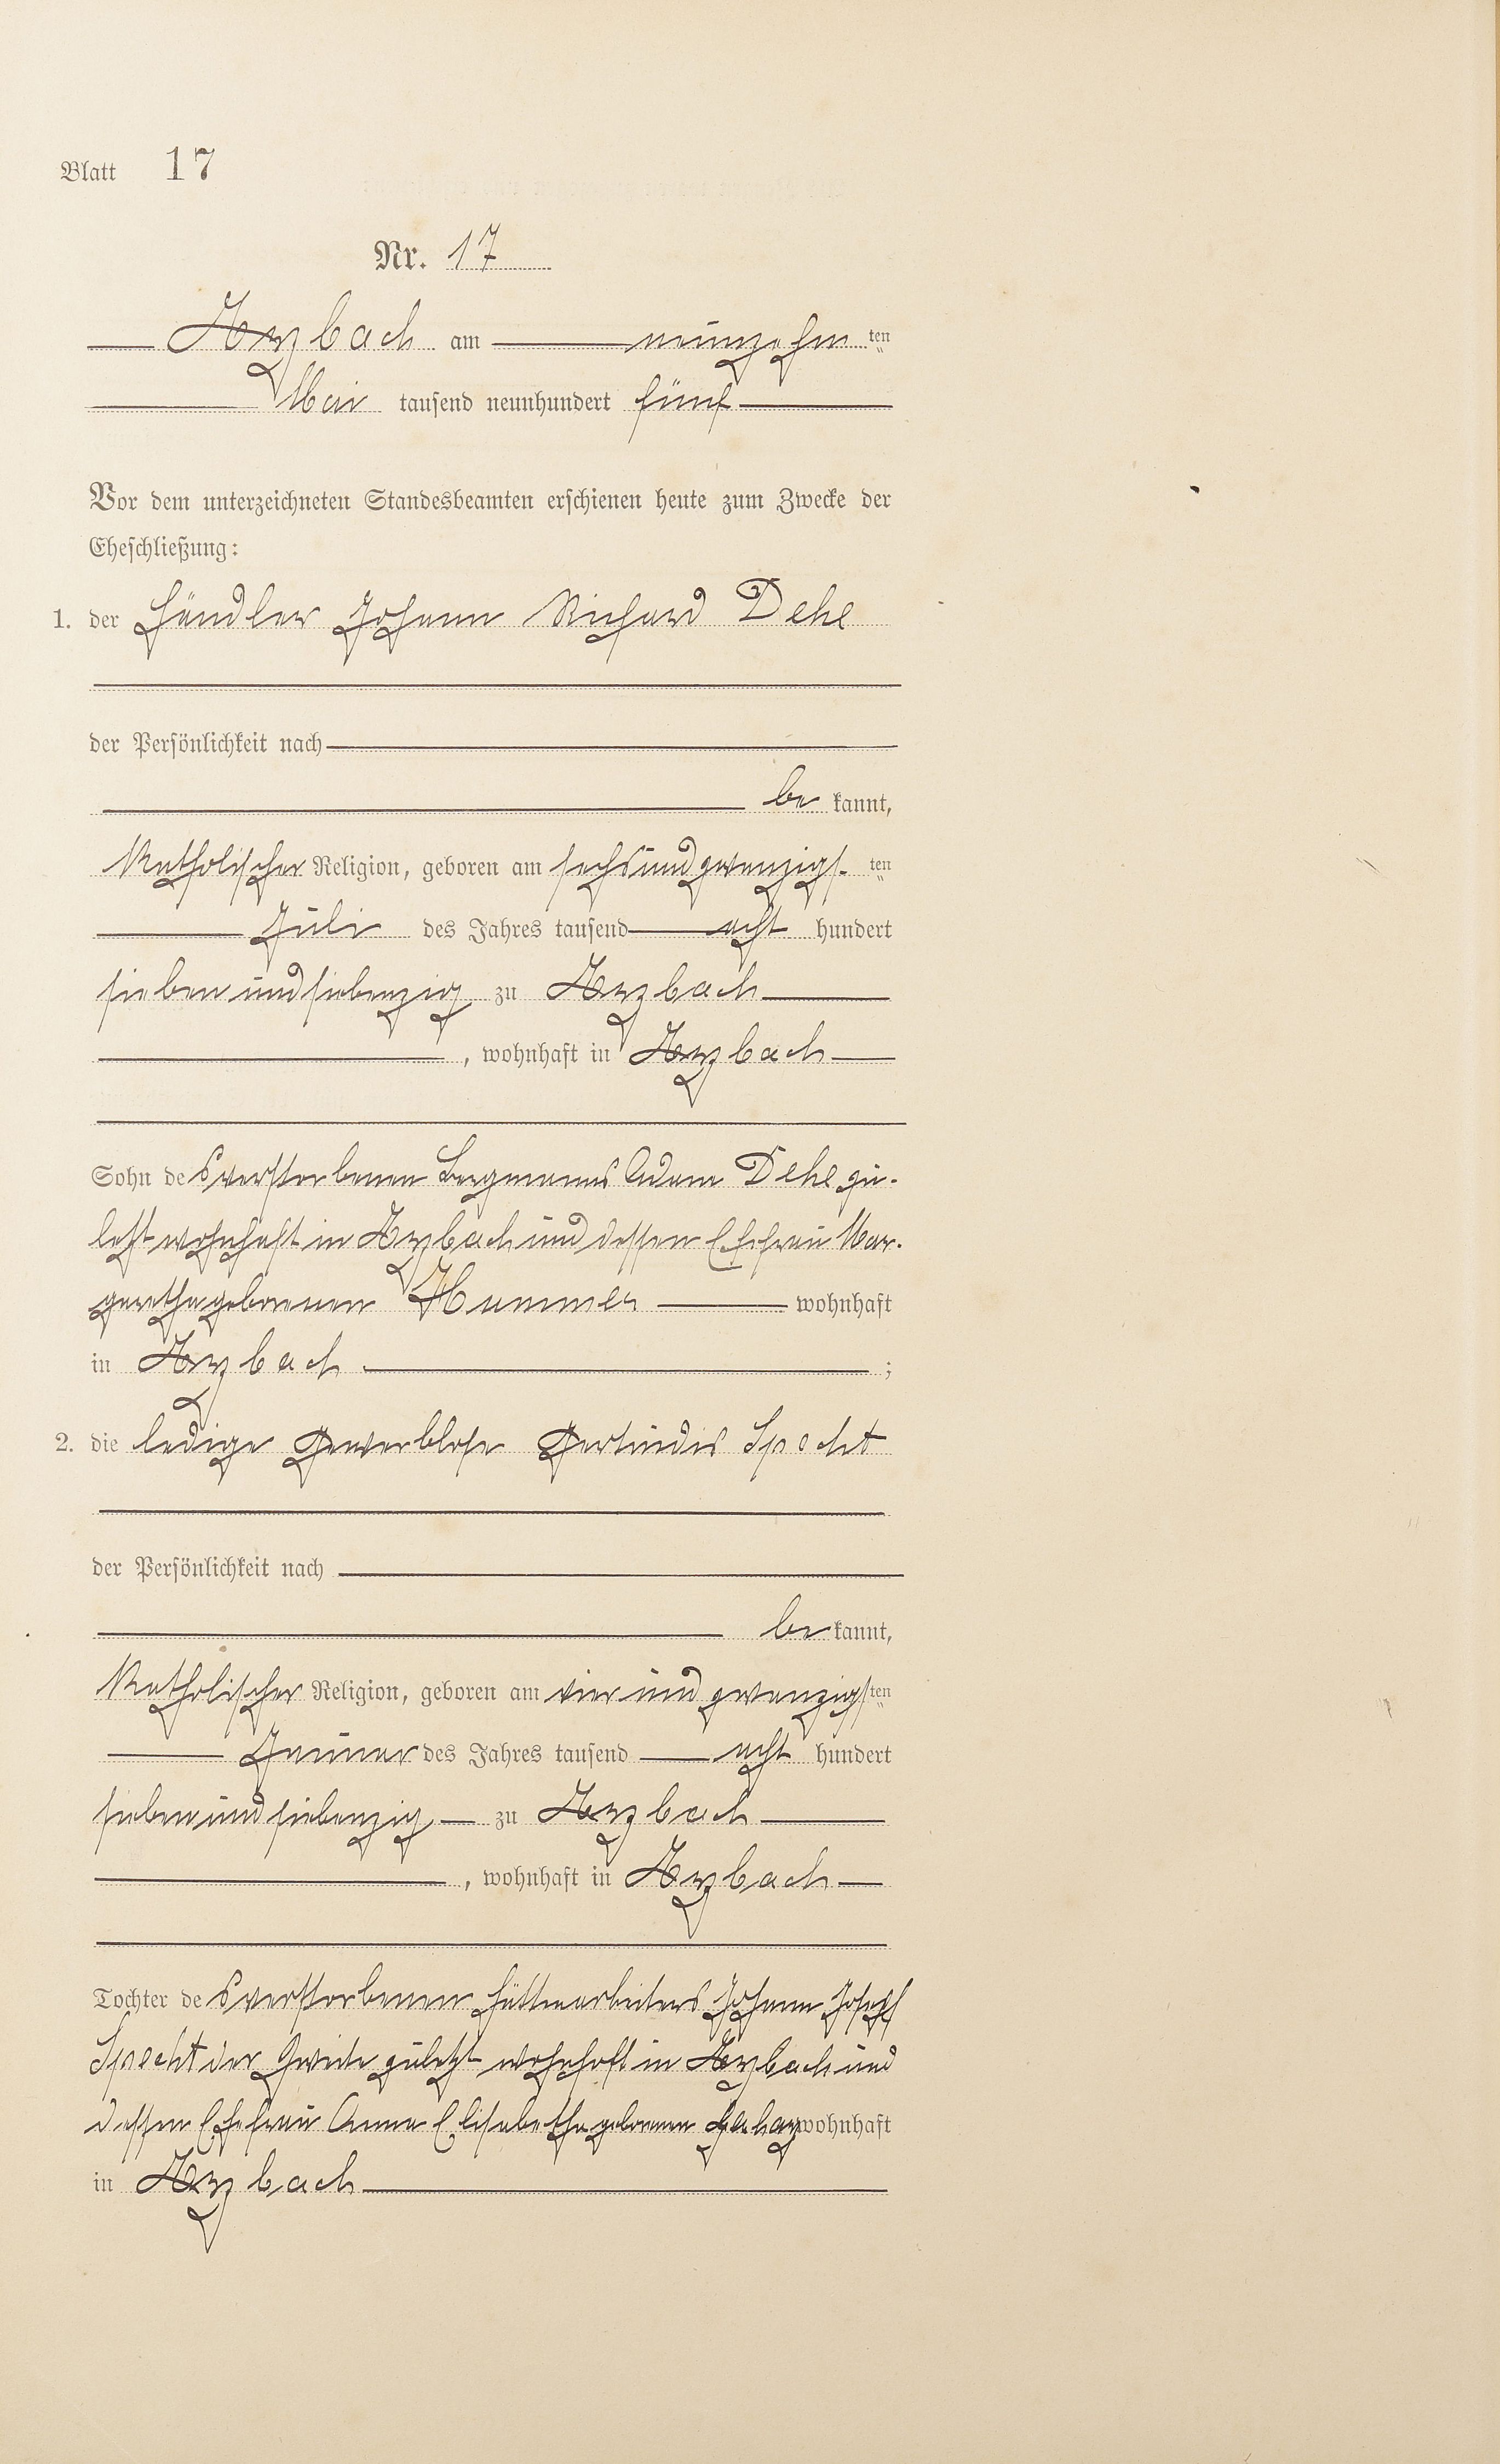 Blatt 17
Nr. 17
Arzbach am neunzehn ten
Mai tausend neunhundert fünf
Vor dem unterzeichneten Standesbeamten erschienen heute zum Zwecke der
Eheschließung:
1. der Händler Johann Richard Dehe
der Persönlichkeit nach
be kannt,
Katholischer Religion, geboren am sechsundzwanzigs- ten
Juli des Jahres tausend acht hundert
siebenundsiebenzig zu Arzbach
, wohnhaft in Arzbach
Sohn des verstorbenen Bergmanns Adam Dehe zu-
letzt wohnhaft in Arzbach und dessen Ehefrau Mar-
garetha geborenen Hammer wohnhaft
in Arzbach ;
2. die ledige Gewerblose Gertrudis Specht
der Persönlichkeit nach
be kannt,
Katholischer Religion, geboren am vierundzwanzigs ten
Januar des Jahres tausend acht hundert
siebenundsiebenzig zu Arzbach
, wohnhaft in Arzbach
Tochter des verstorbenen Hüttenarbeiters Johann Josef
Specht der Zweite zuletzt wohnhaft in Arzbach und
dessen Ehefrau Anna Elisabetha geborenen wohnhaft
in Arzbach